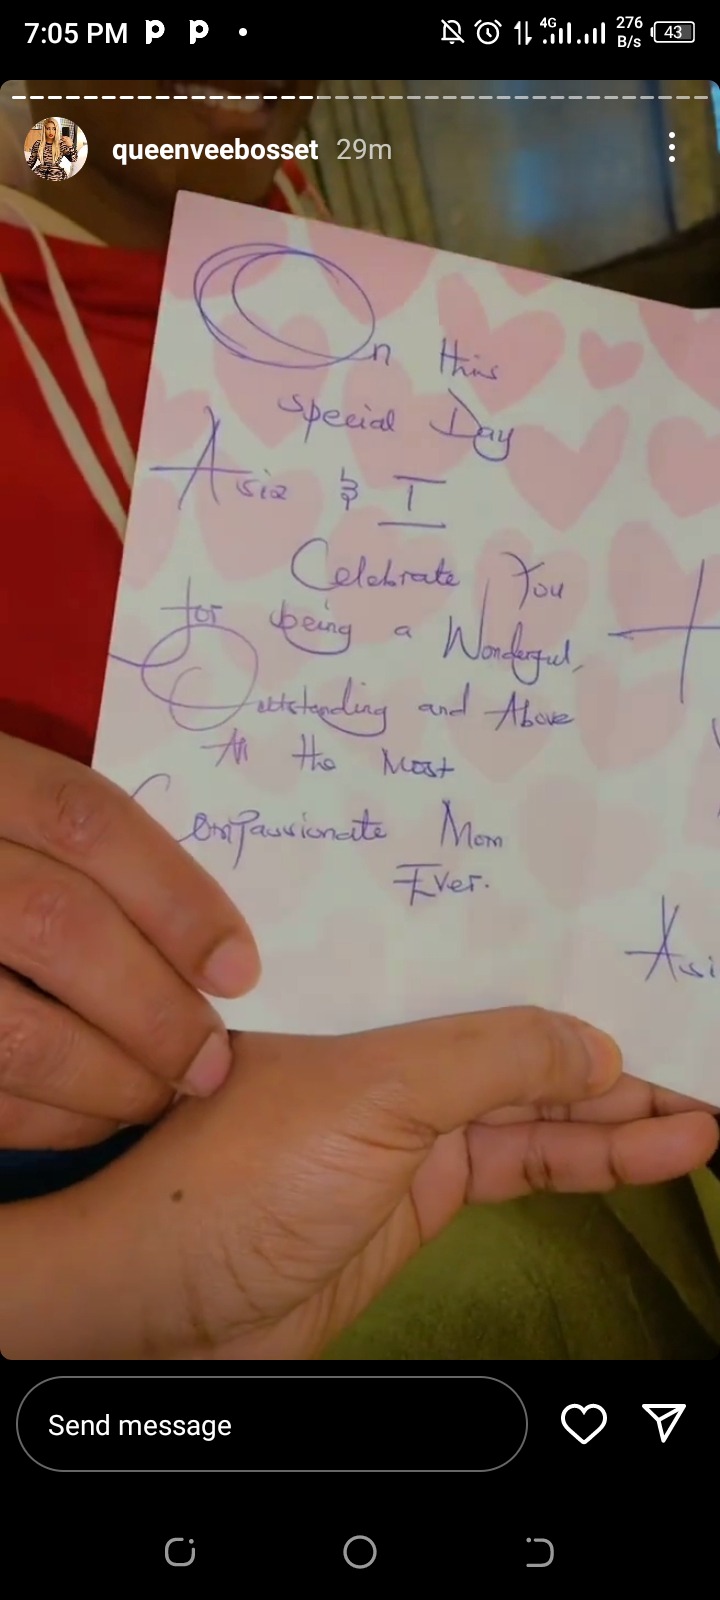 7:05 PM
4G
276
B/s
43
queenveebosset 29m
On this
special Day
Asia & I
Celebrate You
for being a Wonderful,
Outstanding and Above
All the Most
Compassionate Mom
Ever.
Asi
Send message